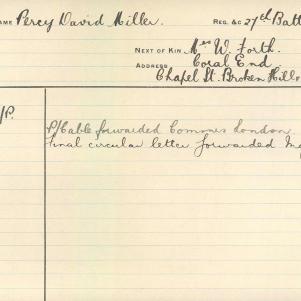 NAME Percy David Miller. REG. &C 27th Batt
NEXT OF KIN Mrs W. Forth.
ADDRESS Coral End
Chapel St. Broken Hill
/P.
P/Cable forwarded Commrs London
final circular letter forwarded